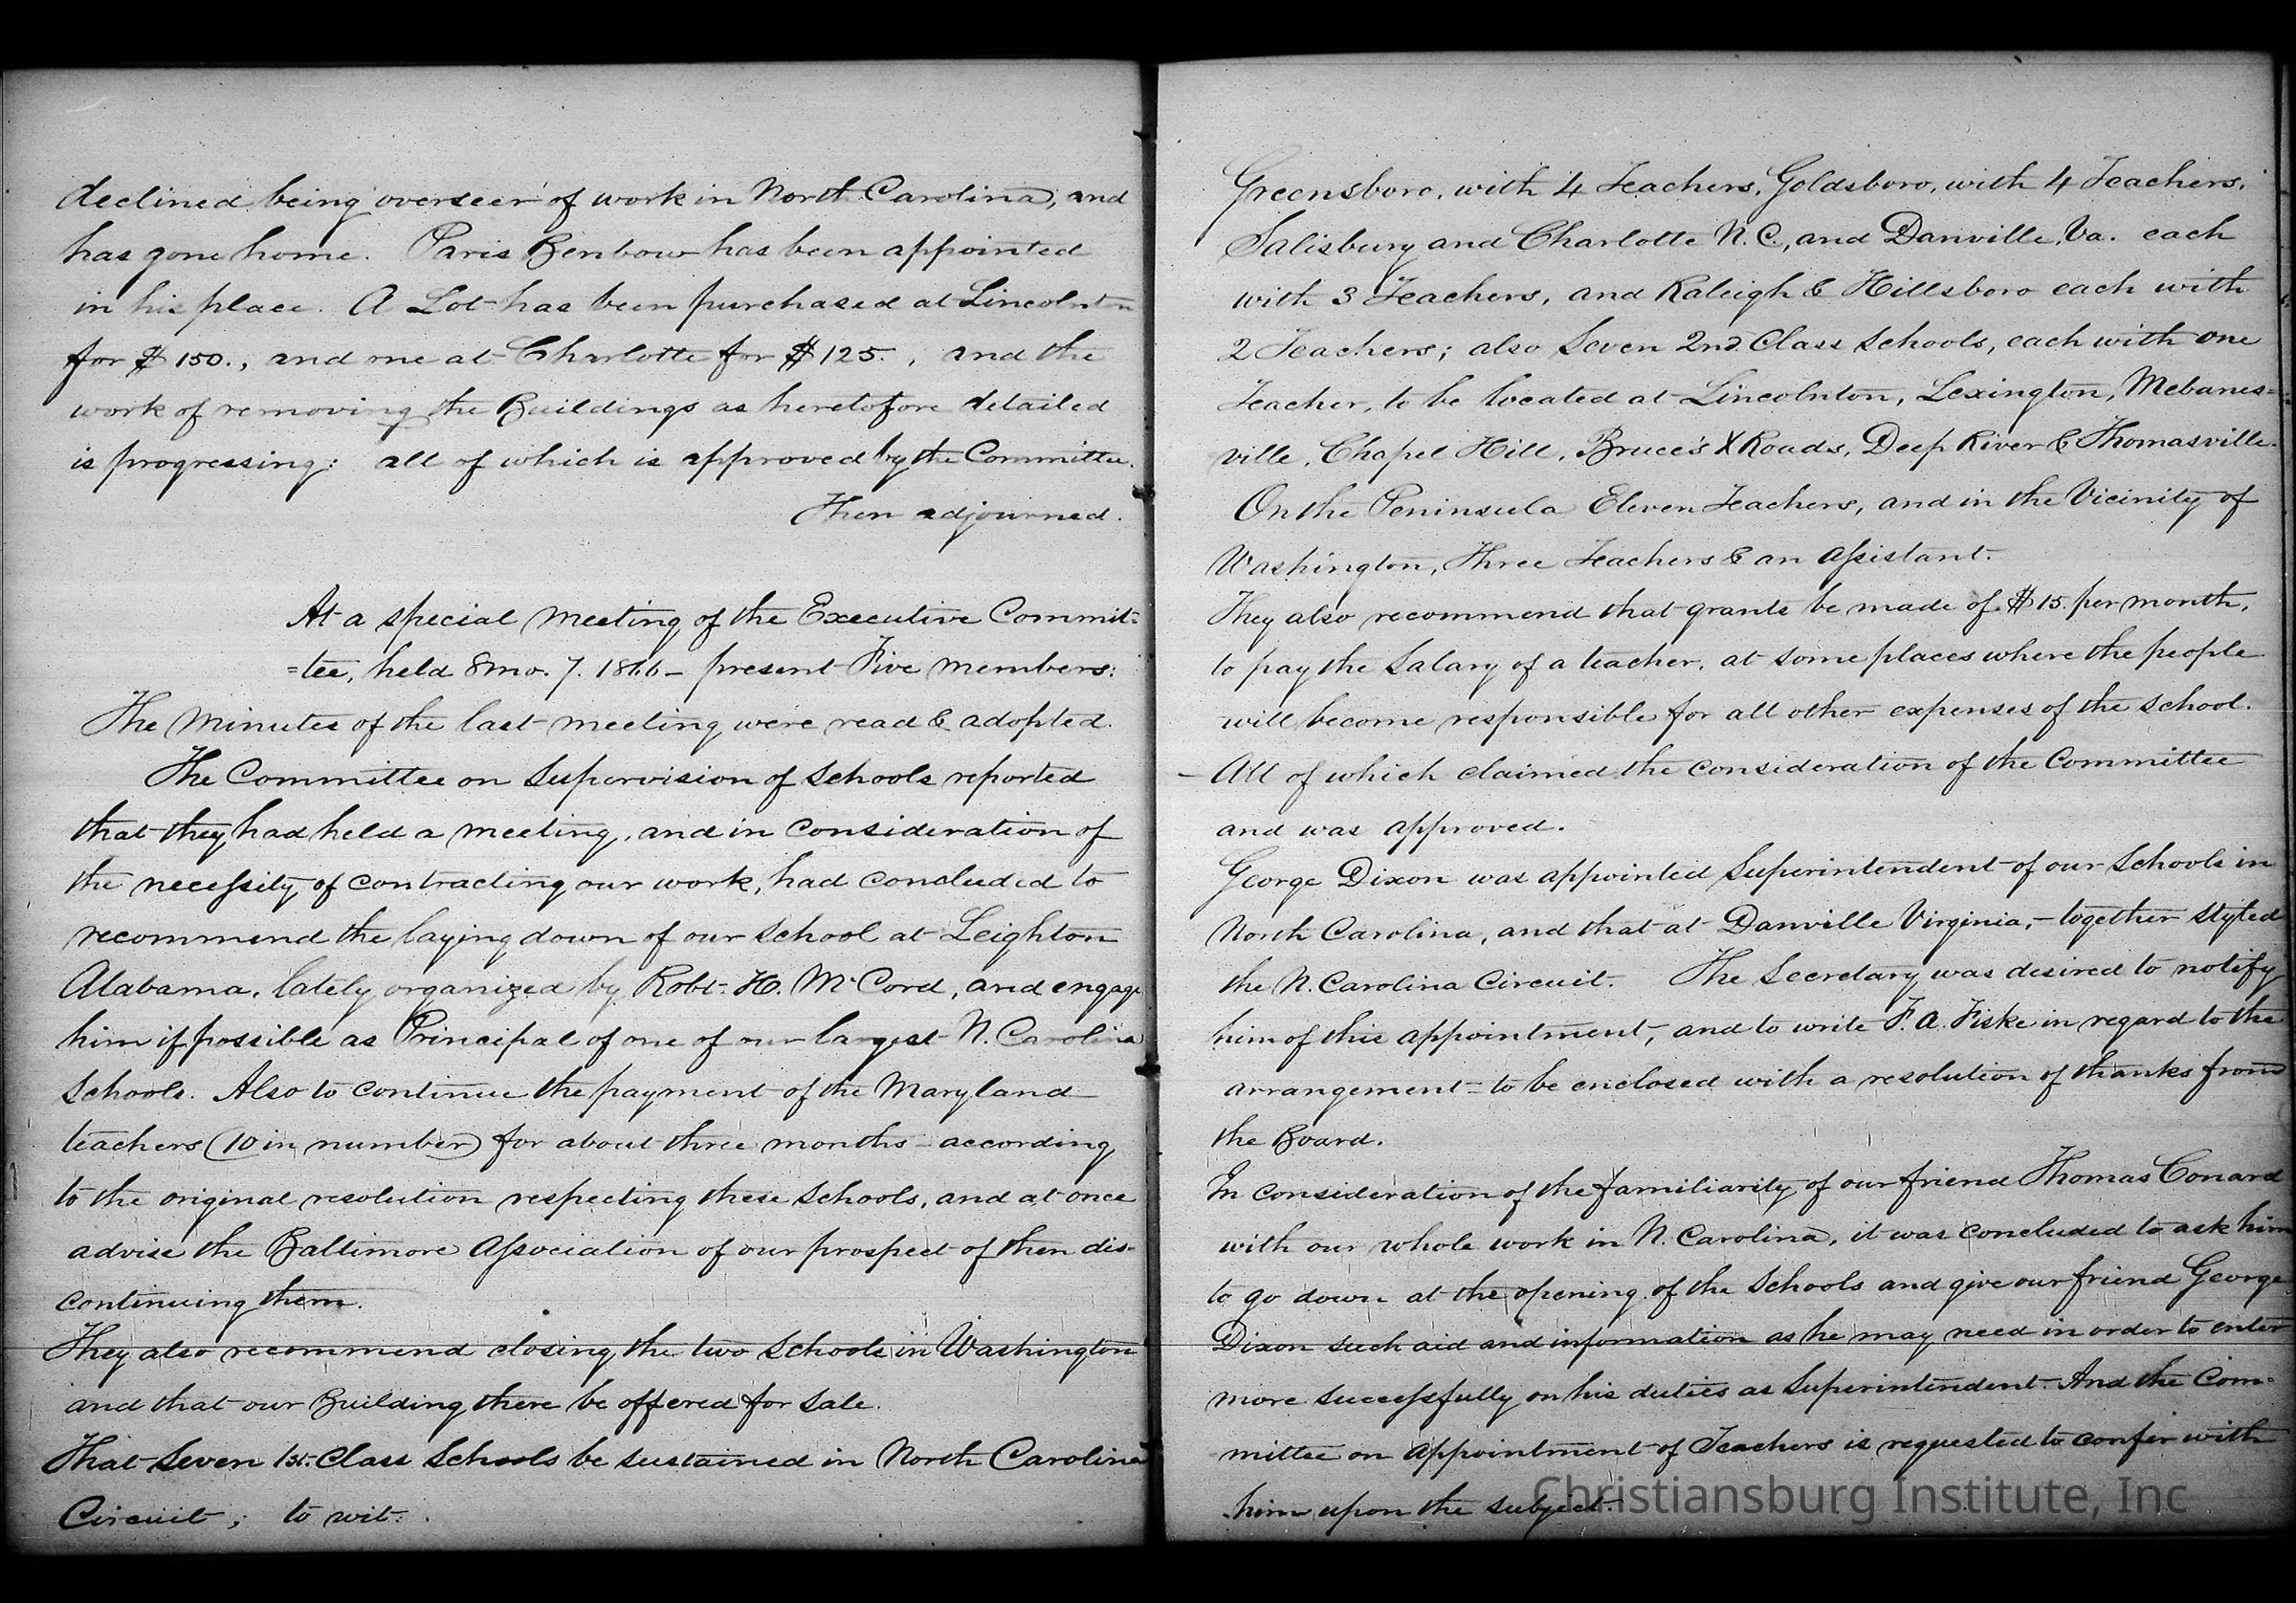 declined being overseer of work in North Carolina, and
has gone home. Paris Benbow has been appointed
in his place. A Lot has been purchased at Lincolnton
for $150., and one at Charlotte for $125., and the
work of removing the Buildings as heretofore detailed
is progressing: all of which is approved by the Committee.
Then adjourned.
At a special meeting of the Executive Commit-
=tee, held 8mo. 7. 1866 - present Five members:
The Minutes of the last meeting were read & adopted.
The Committee on Supervision of Schools reported
that they had held a meeting, and in consideration of
the necessity of contracting our work, had concluded to
recommend the laying down of our school at Leighton
Alabama, lately organized by Robt. H. McCord, and engage
him if possible as Principal of one of our largest N. Carolina
Schools. Also to continue the payment of the Maryland
teachers (10 in number) for about three months according
to the original resolution respecting these Schools, and at once
advise the Baltimore Association of our prospect of then dis-
continuing them.
They also recommend closing the two Schools in Washington
and that our Building there be offered for sale.
That Seven 1st. Class Schools be sustained in North Carolina
Circuit; to wit:
Greensboro, with 4 Teachers, Goldsboro, with 4 Teachers,
Salisbury and Charlotte N.C., and Danville, Va. each
with 3 Teachers, and Raleigh & Hillsboro each with
2 Teachers; also Seven 2nd. Class Schools, each with one
Teacher, to be located at Lincolnton, Lexington, Mebanes=
ville, Chapel Hill, Bruce's X Roads, Deep River & Thomasville.
On the Peninsula Eleven Teachers, and in the Vicinity of
Washington, Three Teachers & an Assistant.
They also recommend that grants be made of $15. per month,
to pay the Salary of a teacher, at some places where the people
will become responsible for all other expenses of the school.
- All of which claimed the consideration of the Committee
and was approved.
George Dixon was appointed Superintendent of our Schools in
North Carolina, and that at Danville Virginia, - together styled
the N. Carolina Circuit. The Secretary was desired to notify
him of this appointment, and to write F. A. Fiske in regard to the
arrangement - to be enclosed with a resolution of thanks from
the Board.
In consideration of the familiarity of our friend Thomas Conard
with our whole work in N. Carolina, it was concluded to ask him
to go down at the opening of the Schools and give our friend George
Dixon such aid and information as he may need in order to enter
more successfully on his duties as Superintendent. And the Com=
mittee on appointment of Teachers is requested to confer with
him upon the subject.
Christiansburg Institute, Inc